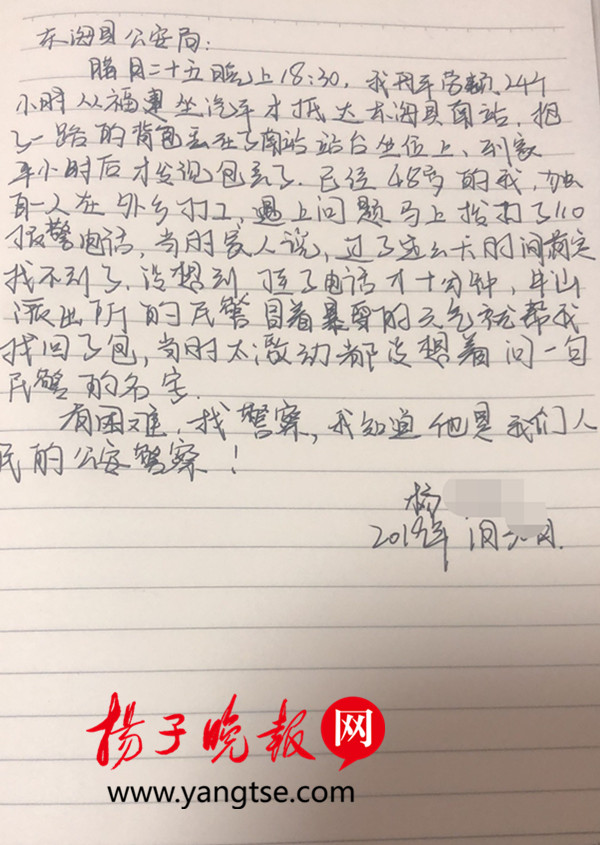 东海县公安局：
腊月二十五晚上18:30，我用车劳顿，24个
小时从福建坐汽车才抵达东海县南站，把
了一路的背包丢在了南站站台坐位上，到家
半小时后才发现包丢了。已经48岁的我，独
自一人在外乡打工，遇上问题马上拨打了110
报警电话，当时家人说，过了这么天时间肯定
找不到了，没想到，挂了电话才十分钟，牛山
派出所的民警冒着暴雪的天气就帮我
找回了包，当时太激动都没想着问一句
民警的名字．
有困难，找警察，我知道他是我们人
民的公安警察！
杨
2019年 1月 月.
扬子晚报网
www.yangtse.com